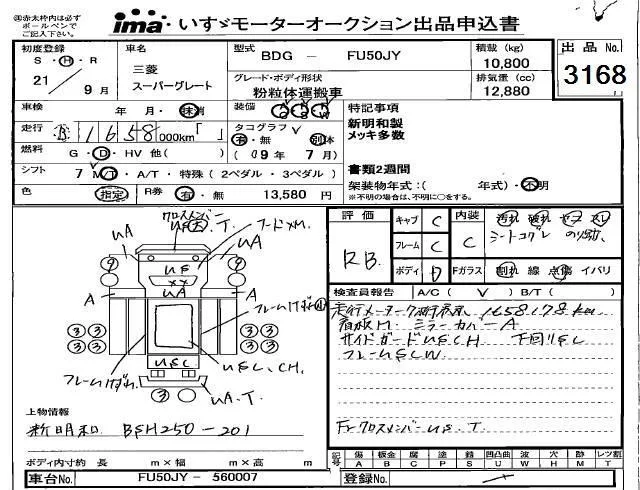 ※赤太枠内は必ず
ボールペンで
ご記入下さい。
ima いすゞモーターオークション出品申込書
初度登録
S・H・R
21年 9月
車名
三菱
スーパーグレート
型式
BDG － FU50JY
グレード・ボディ形状
粉粒体運搬車
積載 (kg)
10,800
排気量 (cc)
12,880
出品 No.
3168
車検 年・月・抹消
装備 A S N
特記事項
新明和製
メッキ多数
走行 B 1658 000km「 」
タコグラフ
有・無 別体
燃料 G・D・HV 他( )
(09年 7月)
書類2週間
シフト 7 M/T・A/T・特殊 (2ペダル・3ペダル)
架装物年式:( 年式)・不明
※不明の場合は、不明に○をする。
色 指定 R券 有・無 13,580 円
評価
R.B.
キャブ C
フレーム C
ボディ D
内装 C
Fガラス
シートコゲレ
割れ 線 点傷 イバリ
検査員報告 A/C( V ) B/T( )
1658178 km
看板M ミラーカバーA
サイドガードUSCH 下回りSC
フレームUSCW
Frクロスメンバー US.T.
クロスメンバー
US大.T
フードXM
UA
UA
US
XX
UA
A
A
③③
③③
③③
③③
③
USC
USC,CH.
UA.T.
上物情報
新明和 BSH250－201
ボディ内寸約 長 m×幅 m×高 m
車台No. FU50JY － 560007
記号
傷 板金 腐 塗 錆 凹凸曲 波 穴 跡 レツ割
A B C P S U W H M T
登録No.